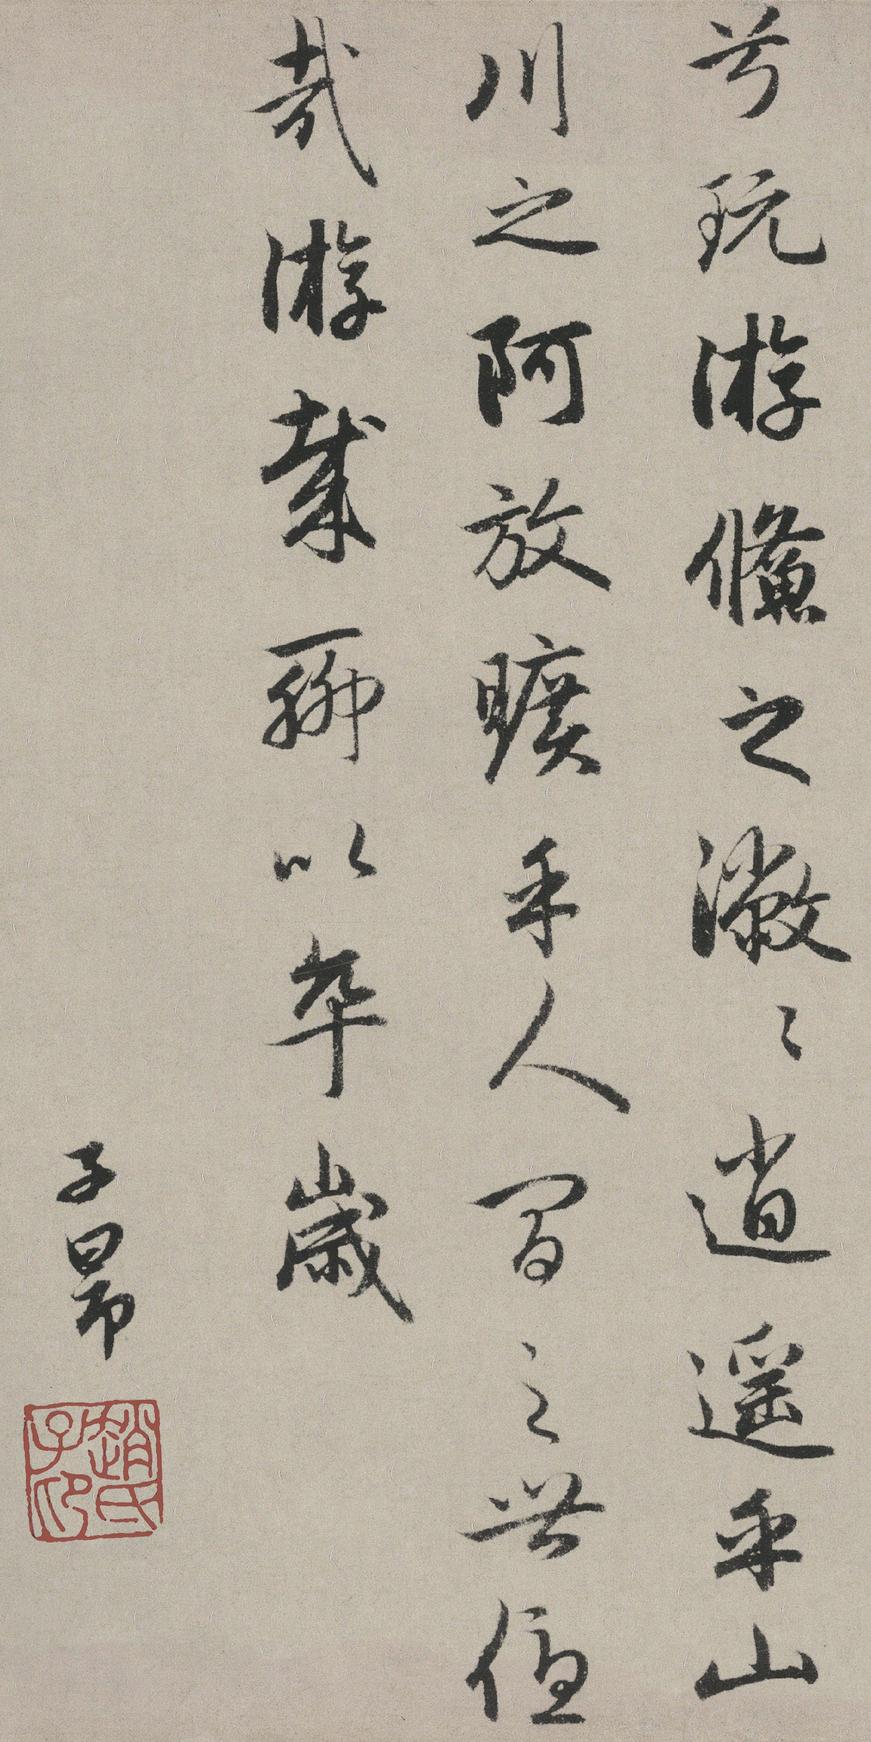 兮玩游鯈之潎〻逍遥乎山
川之阿放曠乎人間之世優
哉游哉聊以卒歲
子昂
趙氏子昂